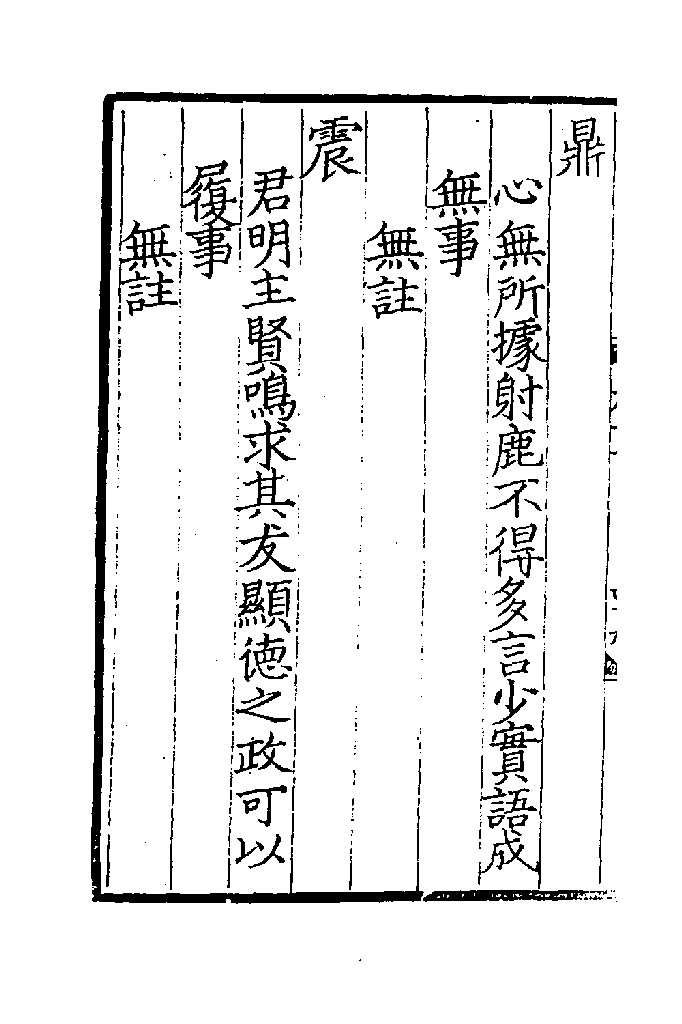 鼎
心無所據射鹿不得多言少實語成
無事
無註
震
君明主賢鳴求其友顯德之政可以
履事
無註